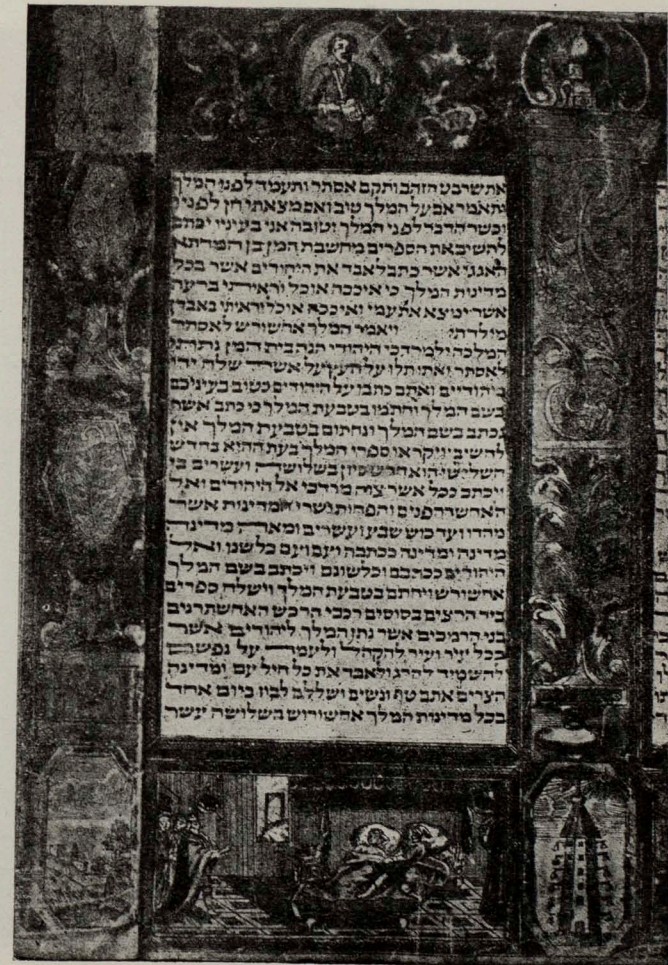 את שרבט הזהב ותקם אסתר ותעמד לפני המלך
ותאמר אם על המלך טוב ואם מצאתי חן לפניו
וכשר הדבר לפני המלך וטובה אני בעיניו יכתב
להשיב את הספרים מחשבת המן בן המדתא
האגגי אשר כתב לאבד את היהודים אשר בכל
מדינות המלך כי איככה אוכל וראיתי ברעה
אשר ימצא את עמי ואיככה אוכל וראיתי באבדן
מולדתי ויאמר המלך אחשורש לאסתר
המלכה ולמרדכי היהודי הנה בית המן נתתי
לאסתר ואתו תלו על העץ על אשר שלח ידו
ביהודיים ואתם כתבו על היהודים כטוב בעיניכם
בשם המלך וחתמו בטבעת המלך כי כתב אשר
נכתב בשם המלך ונחתום בטבעת המלך אין
להשיב ויקראו ספרי המלך בעת ההיא בחדש
השלישי הוא חדש סיון בשלושה ועשרים בו
ויכתב ככל אשר צוה מרדכי אל היהודים ואל
האחשדרפנים והפחות ושרי המדינות אשר
מהדו ועד כוש שבע ועשרים ומאה מדינה
מדינה ומדינה ככתבה ועם ועם כלשנו ואל
היהודים ככתבם וכלשונם ויכתב בשם המלך
אחשורש ויחתם בטבעת המלך וישלח ספרים
ביד הרצים בסוסים רכבי הרכש האחשתרנים
בני הרמכים אשר נתן המלך ליהודים אשר
בכל עיר ועיר להקהל ולעמד על נפשם
להשמיד להרג ולאבד את כל חיל עם ומדינה
הצרים אתם טף ונשים ושללם לבוז ביום אחד
בכל מדינות המלך אחשורוש בשלושה עשר